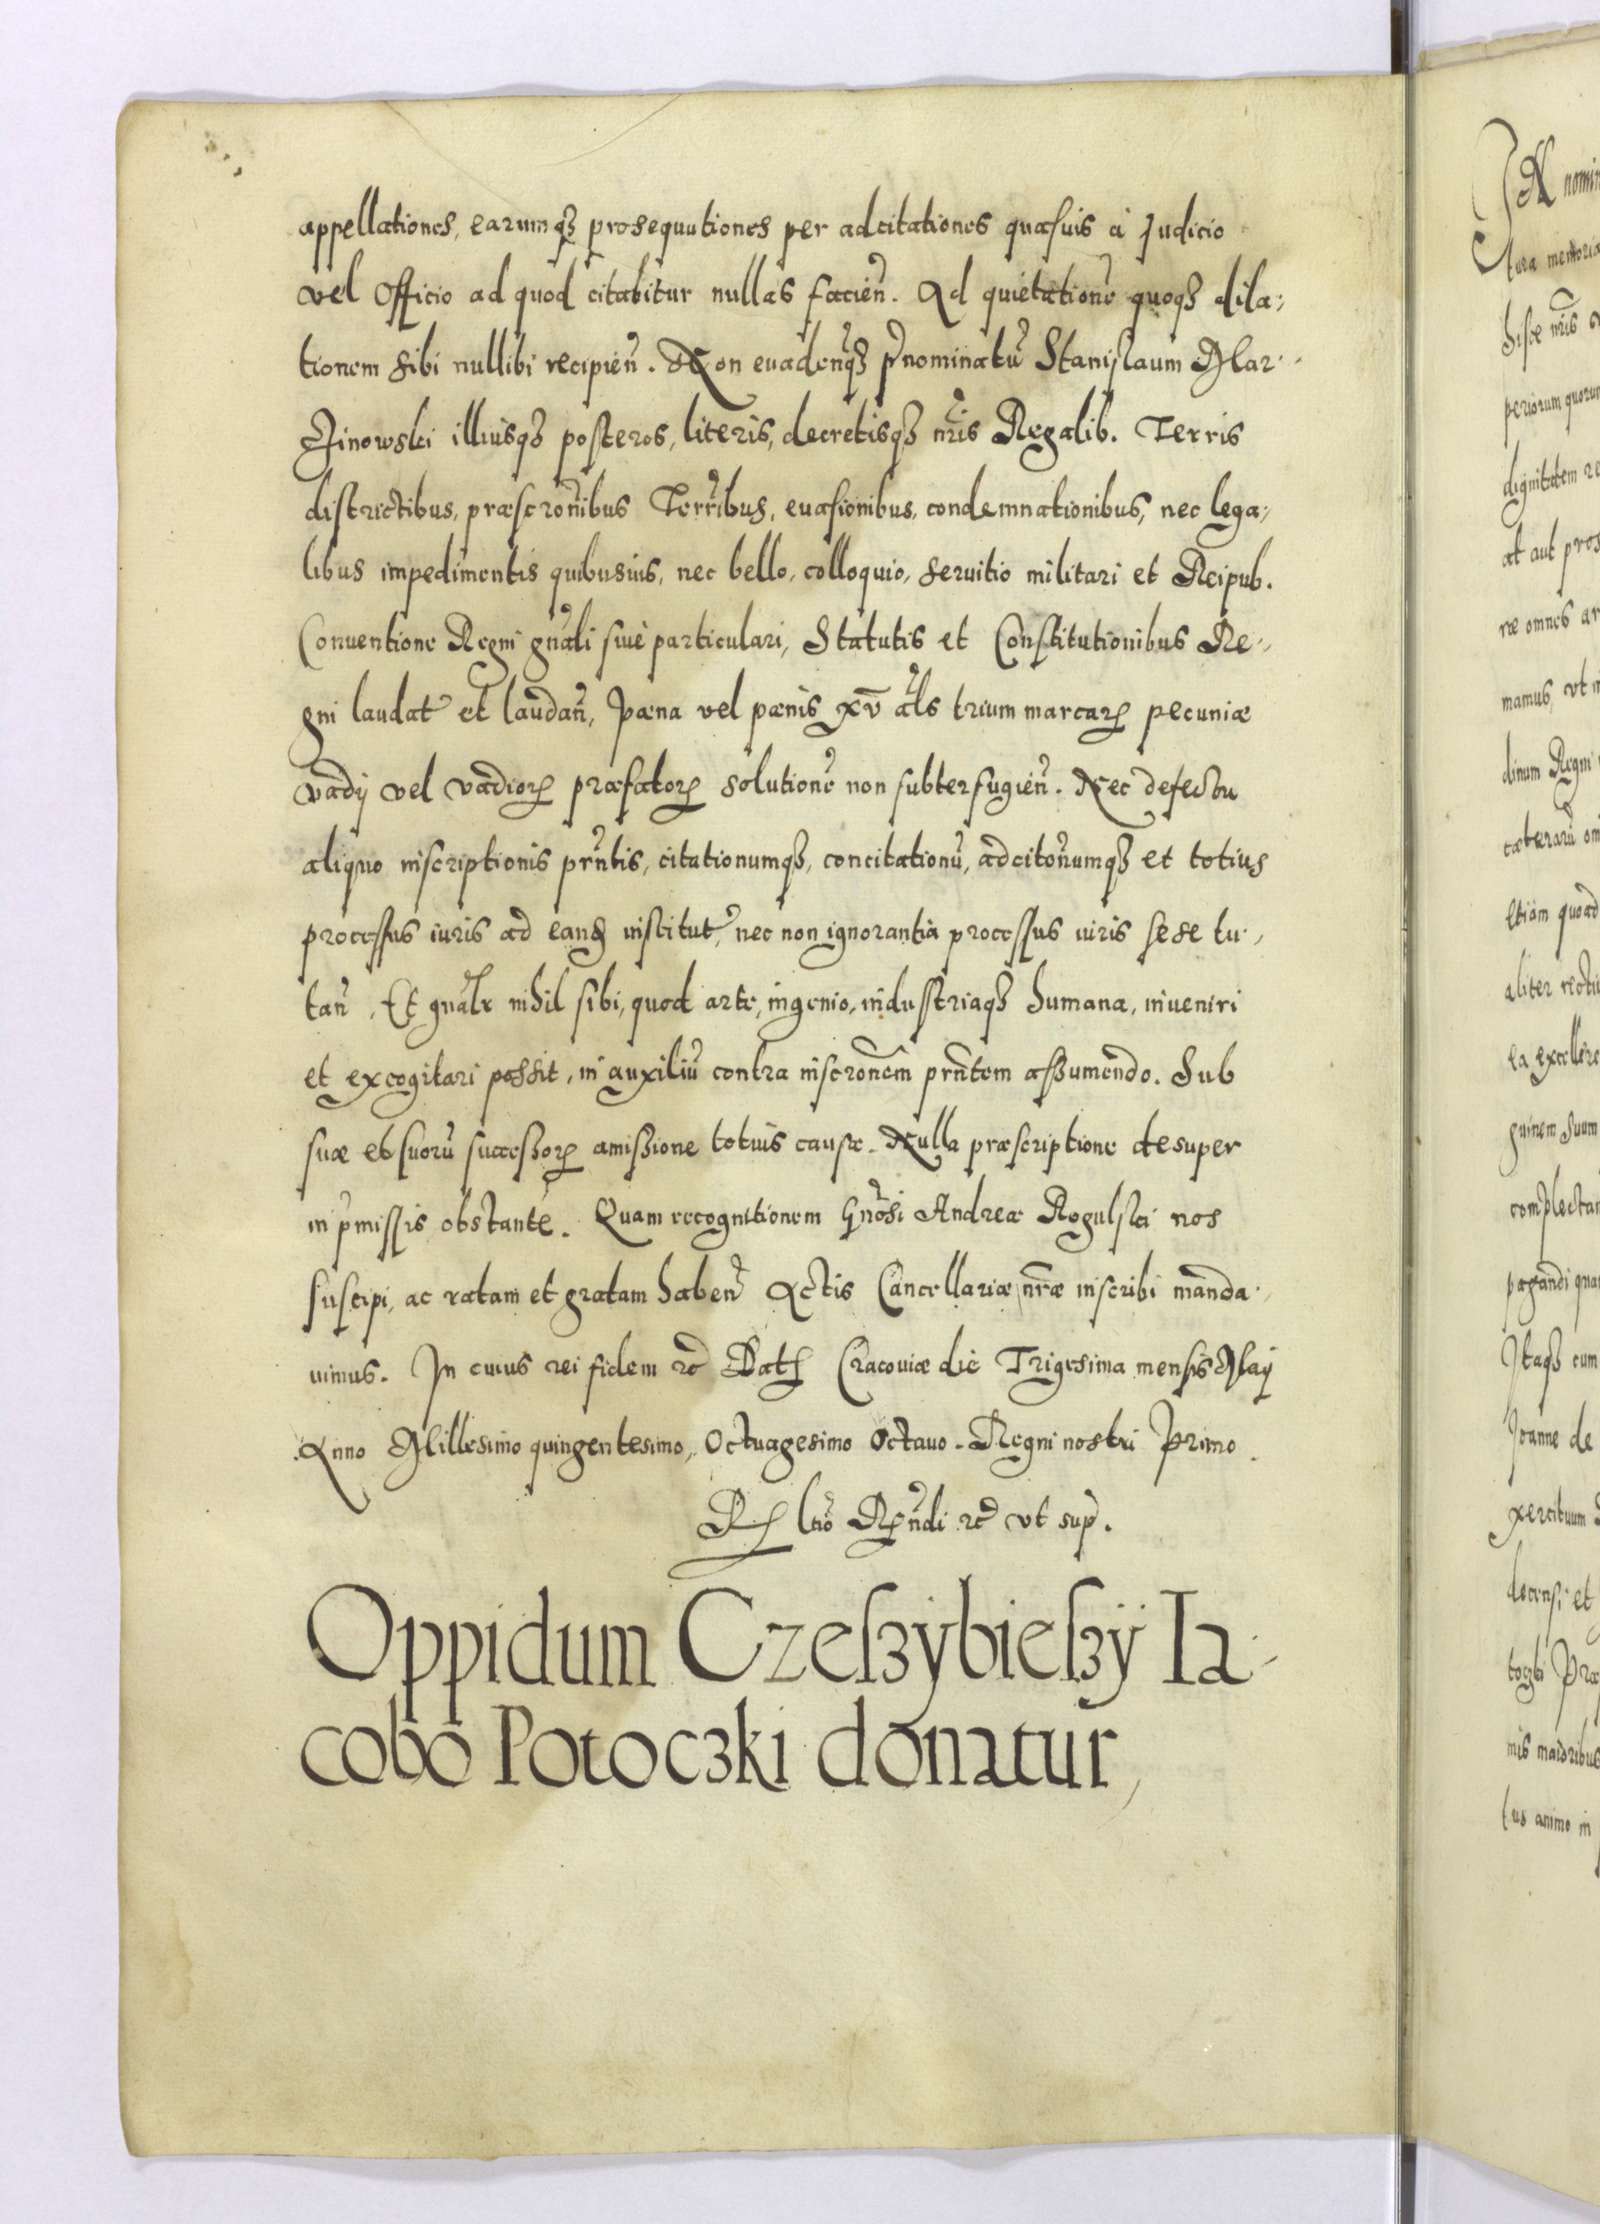 appellationes, earumqꝫ prosequutiones per adcitationes quasuis à Judicio
vel Officio ad quod citabitur nullas facieñ. Ad quietatione quoqꝫ dila,
tionem sibi nullibi recipieñ. Non euadenqꝫ p̃nominatũ Stanislaum Mar-
zinowski illiusqꝫ posteros, literis, decretisqꝫ nr̃is Regalib. Terris
districtibus, præscrõnibus Terr̃ibus, euasionibus, condemnationibus, nec lega,
libus impedimentis quibusuis, nec bello, colloquio, seruitio militari et Reipub.
Conuentione Regni gñali siue particulari, Statutis et Constitutionibus Re-
gni laudat̃ et laudañ, Pæna vel pænis xv al̃s trium marcarꝝ pecuniæ
vadij vel vadiorꝝ præfatorꝝ solutione non subterfugieñ. Nec defectu
aliquo inscriptionis prñtis, citationumqꝫ, concitationũ, adcitonũmqꝫ et totius
processus iuris ad eandꝫ institut̃, nec non ignorantia processus iuris sese tu-
tañ. Et gñalr nihil sibi, quod arte, ingenio, industriaqꝫ humana, inueniri
et excogitari possit, in auxiliũ contra inscrõnem prñtem assumendo. Sub
suæ et suorũ successorꝝ amissione totius causæ. Nulla præscriptione desuper
in p̃missis obstante. Quam recognitionem Gñosi Andreæ Rogulski nos
suscipi, ac ratam et gratam habeñ Actis Cancellariæ nr̃æ inscribi manda-
uimus. In cuius rei fidem rc̃ Datꝭ Cracouiæ die Trigesima mensis Maij
Anno Millesimo quingentesimo, Octuagesimo Octauo. Regni nostri Primo.
Rꝭ ltio Rꝑñdi rc̃ vt sup̃.
Oppidum Czeſzÿbieſzÿ Ia-
cobo Potoczki donatur,
IN nomin
tura memoria
hisce nr̃is
periorum quorum
dignitatem re
at aut pros
ræ omnes ar
mamus, vt
dinum Regni
cæterarũ om
etiam quoad
aliter rectiu
ea excellere
guinem suum
complectan
pagandi quam
Itaqꝫ cum
Joanne de
xercituum
decensi et
toczki Præ
mis maioribus
tus animo in